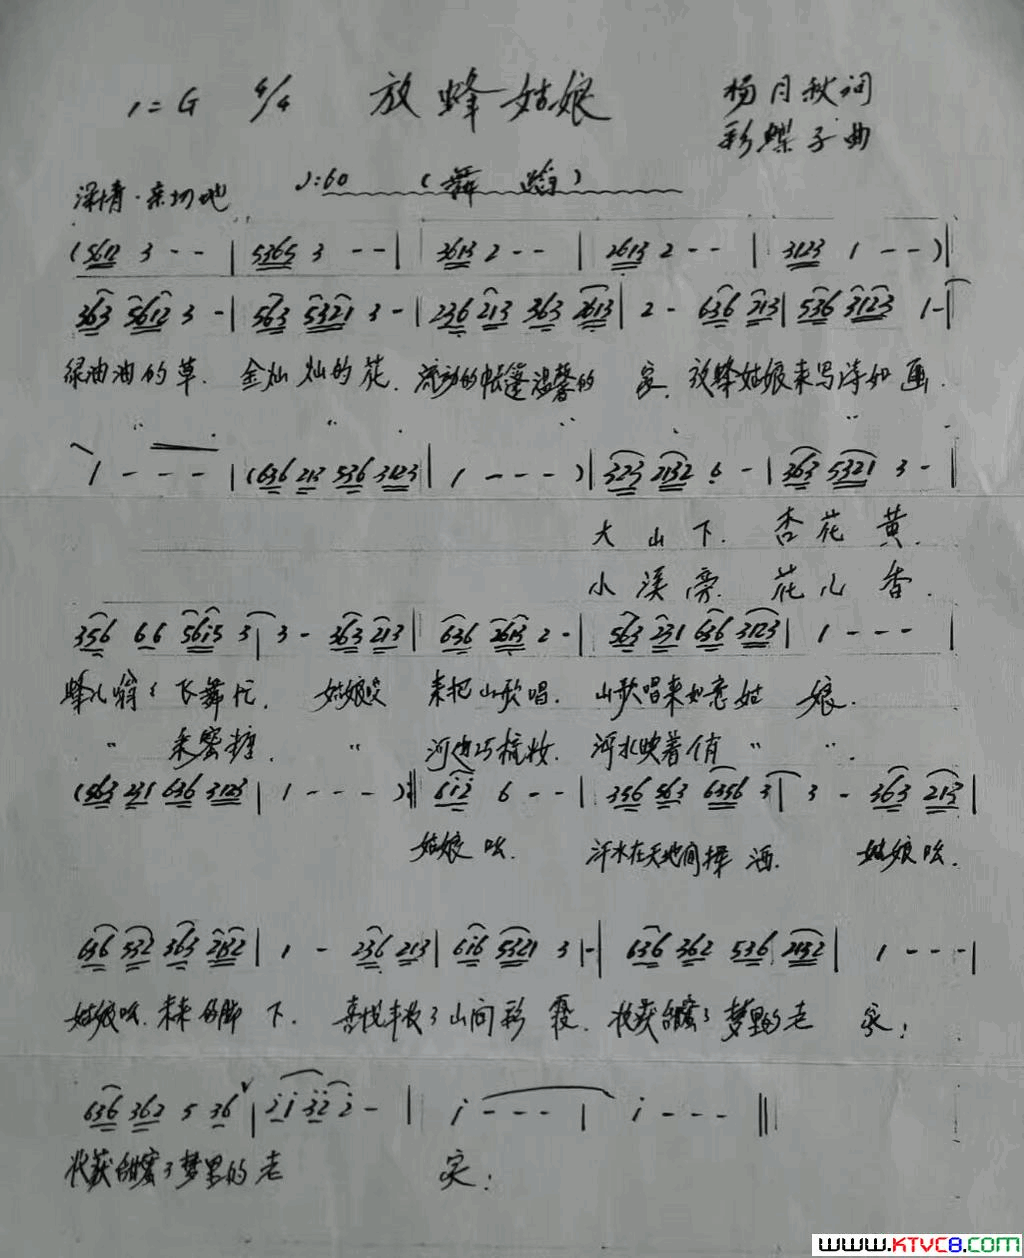 1=G 4/4 放蜂姑娘 杨月秋词
彩蝶子曲
深情·亲切地 ♩:60 (舞蹈)
(5612 3 - - | 5365 3 - - | 3613 2 - - | 2613 2 - - | 3123 1 - - )|
363 5612 3 - | 563 5321 3 - | 236 213 363 2613 | 2 - 636 213 | 536 3123 1 - |
绿油油的草. 金灿灿的花. 流动的帐篷温馨的 家. 放蜂姑娘来写诗如画.
" " " " "
1 - - - | (636 213 536 3123 | 1 - - - )| 323 2132 6 - | 363 5321 3 - |
大山下. 杏花黄.
小溪旁. 花儿香.
356 66 5615 3 | 3 - 363 213 | 636 2613 2 - | 563 231 636 3123 | 1 - - - |
蜂儿翁〃飞舞忙. 姑娘 来把山歌唱. 山歌唱来如意姑 娘.
" 采蜜糖. " 河边巧梳妆. 河水映着俏 " ".
(563 231 636 3123 | 1 - - - )‖ 612 6 - - | 356 563 6356 3 | 3 - 363 213 |
姑娘 . 汗水在天地间挥洒. 姑娘 .
636 532 363 2132 | 1 - 236 213 | 616 5321 3 - | 636 362 536 2132 | 1 - - - |
姑娘 . 脚下. 喜悦丰收了山间彩霞. 收获甜蜜了梦里的老 家;
636 362 5 36 ∨ | 2 1 3 2 2 - | 1 - - - | 1 - - - ‖
收获甜蜜了梦里的老 家;
www.KTVC8.com